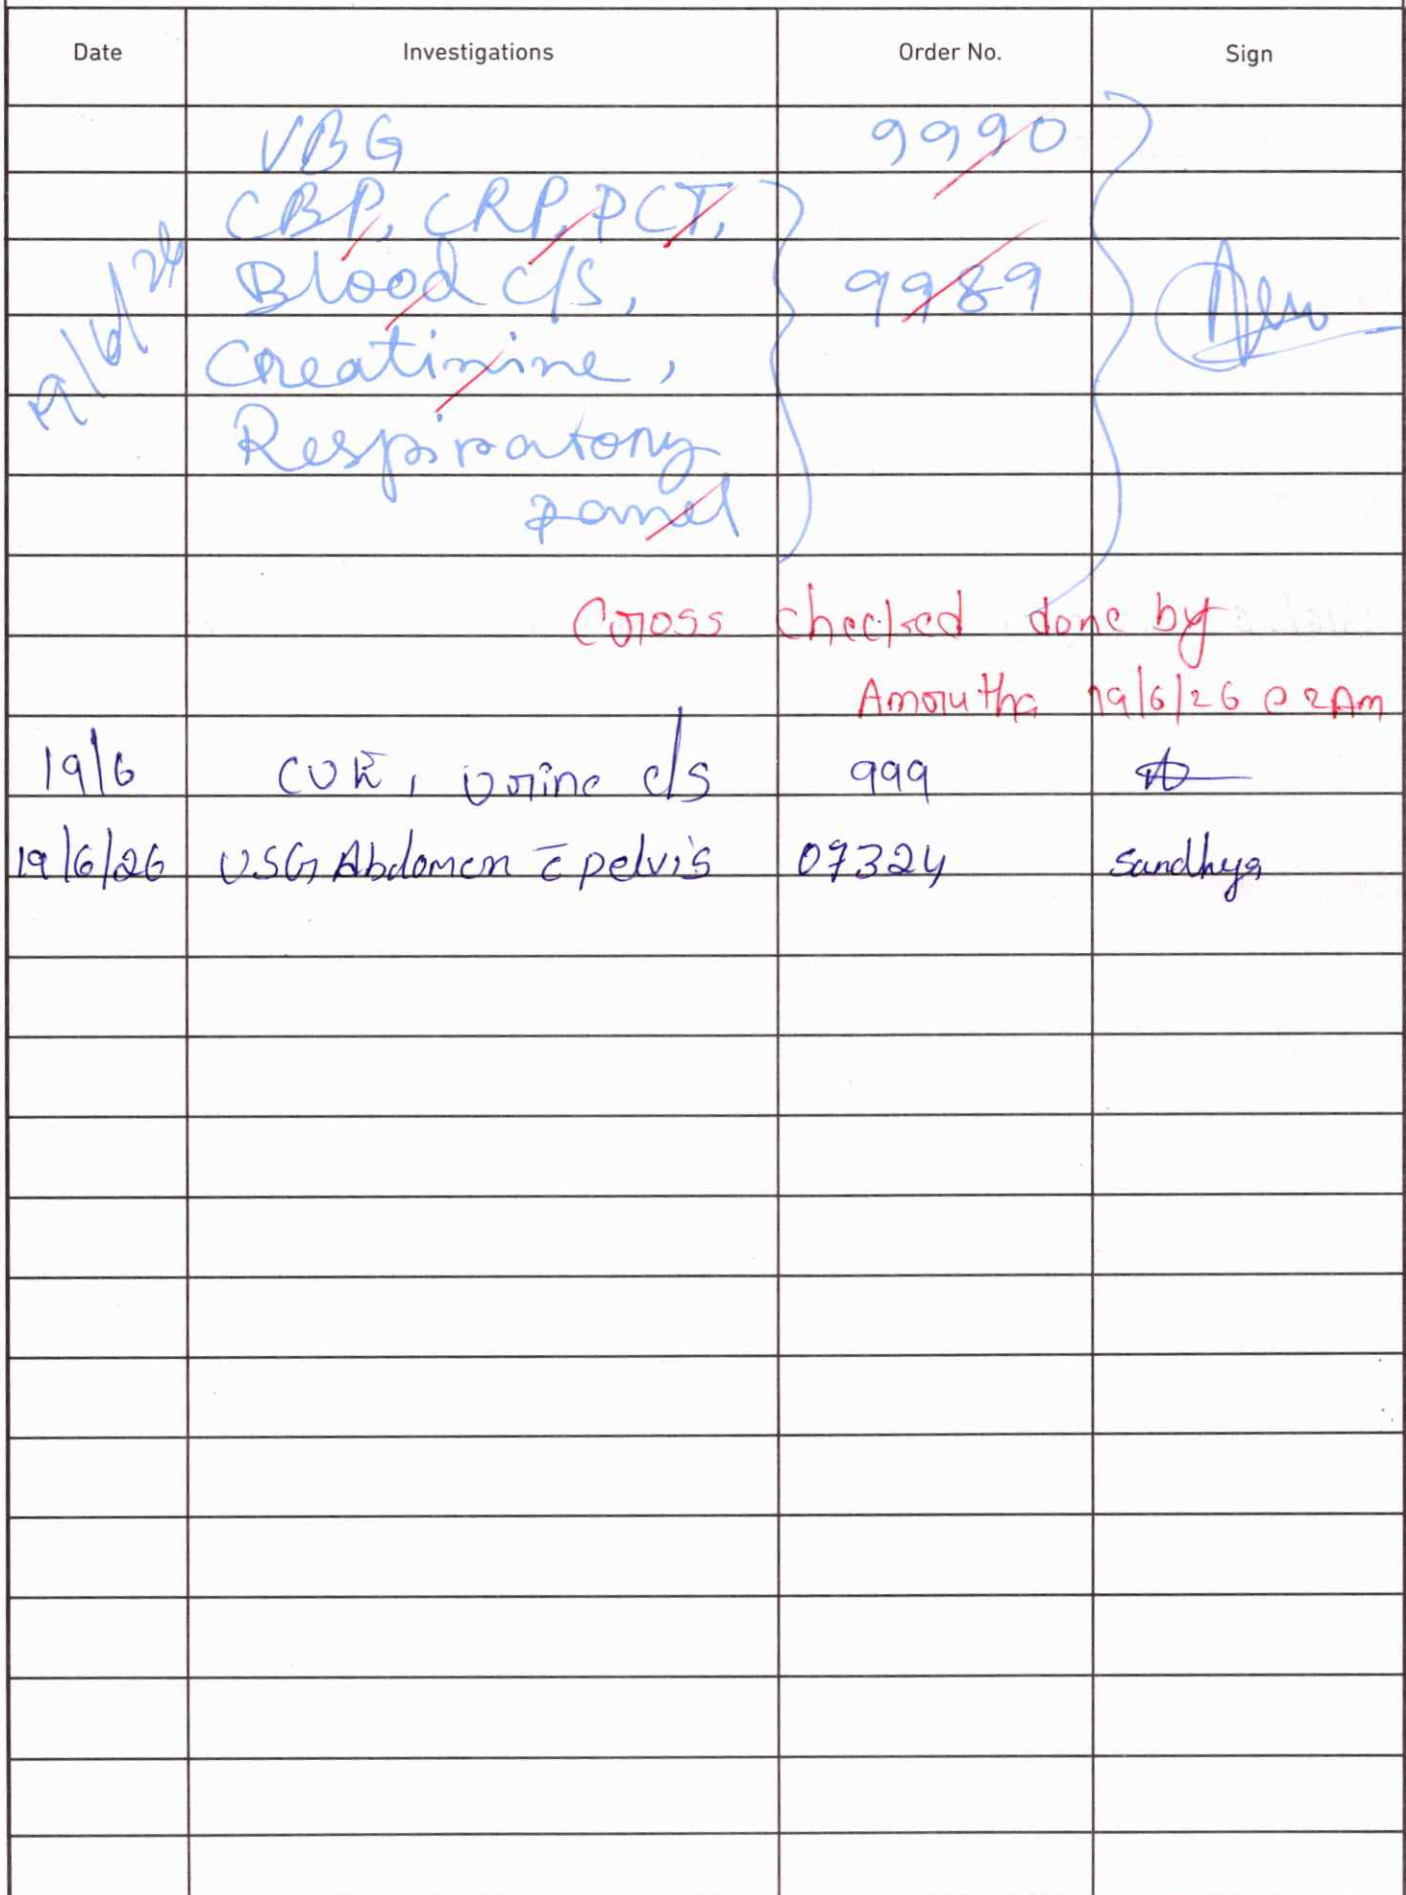 Date Investigations Order No. Sign
VBG 9990
CBP, CRP, PCT,
Blood c/s, 9989
Creatinine,
Respiratory
panel
Cross checked done by
Amrutha 19/6/26 @ 2Am
19/6 CUE, Urine c/s 999
19/6/26 USG Abdomen c̄ pelvis 07324 Sandhya